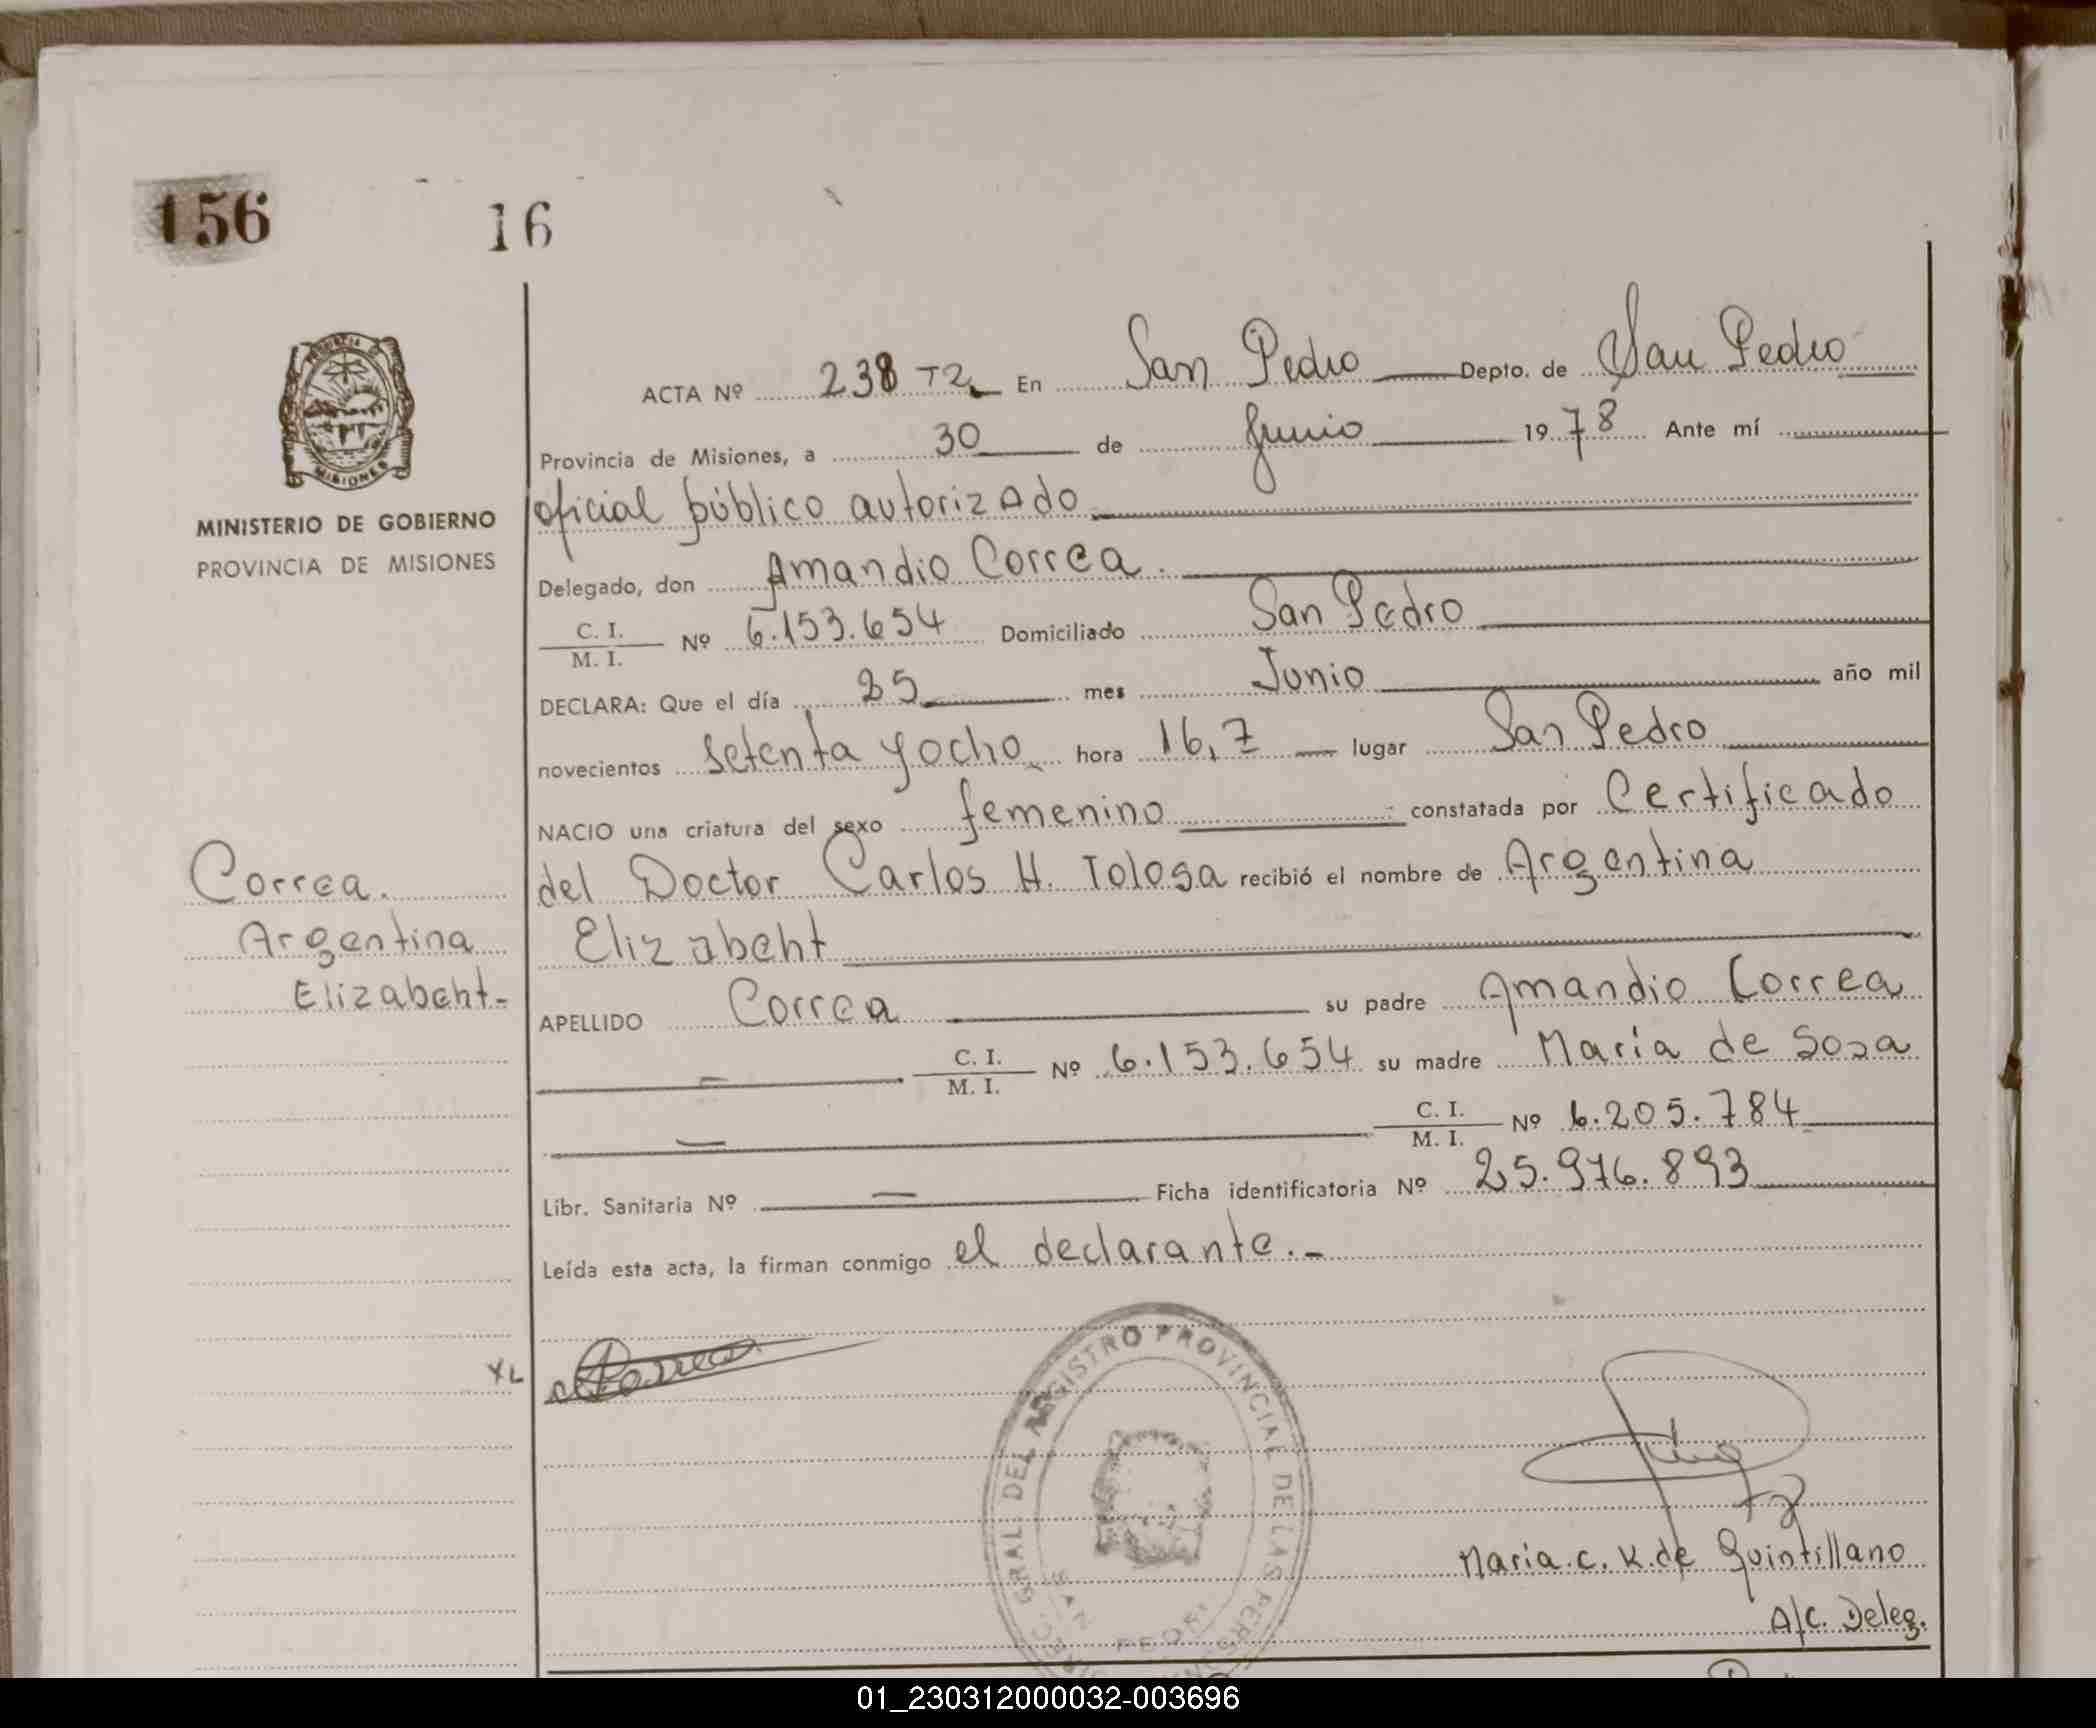 156 16
ACTA Nº 238 T2 En San Pedro Depto. de San Pedro
Provincia de Misiones, a 30 de Junio 1978 Ante mí
oficial público autorizado
MINISTERIO DE GOBIERNO
PROVINCIA DE MISIONES
Delegado, don Amandio Correa.
C. I. / M. I. Nº 6.153.654 Domiciliado San Pedro
DECLARA: Que el día 25 mes Junio año mil
novecientos setenta y ocho hora 16,7 lugar San Pedro
NACIO una criatura del sexo femenino constatada por Certificado
del Doctor Carlos H. Tolosa recibió el nombre de Argentina
Elizabeht
Correa.
Argentina
Elizabeht-
APELLIDO Correa su padre Amandio Correa
C. I. / M. I. Nº 6.153.654 su madre María de Sosa
C. I. / M. I. Nº 6.205.784
Libr. Sanitaria Nº — Ficha identificatoria Nº 25.976.893
Leída esta acta, la firman conmigo el declarante.-
XL
GRAL. DEL REGISTRO PROVINCIAL DE LAS PERSONAS
SAN PEDRO
María C. K. de Quintillano
A/C. Deleg.
MISIONES
01_230312000032-003696